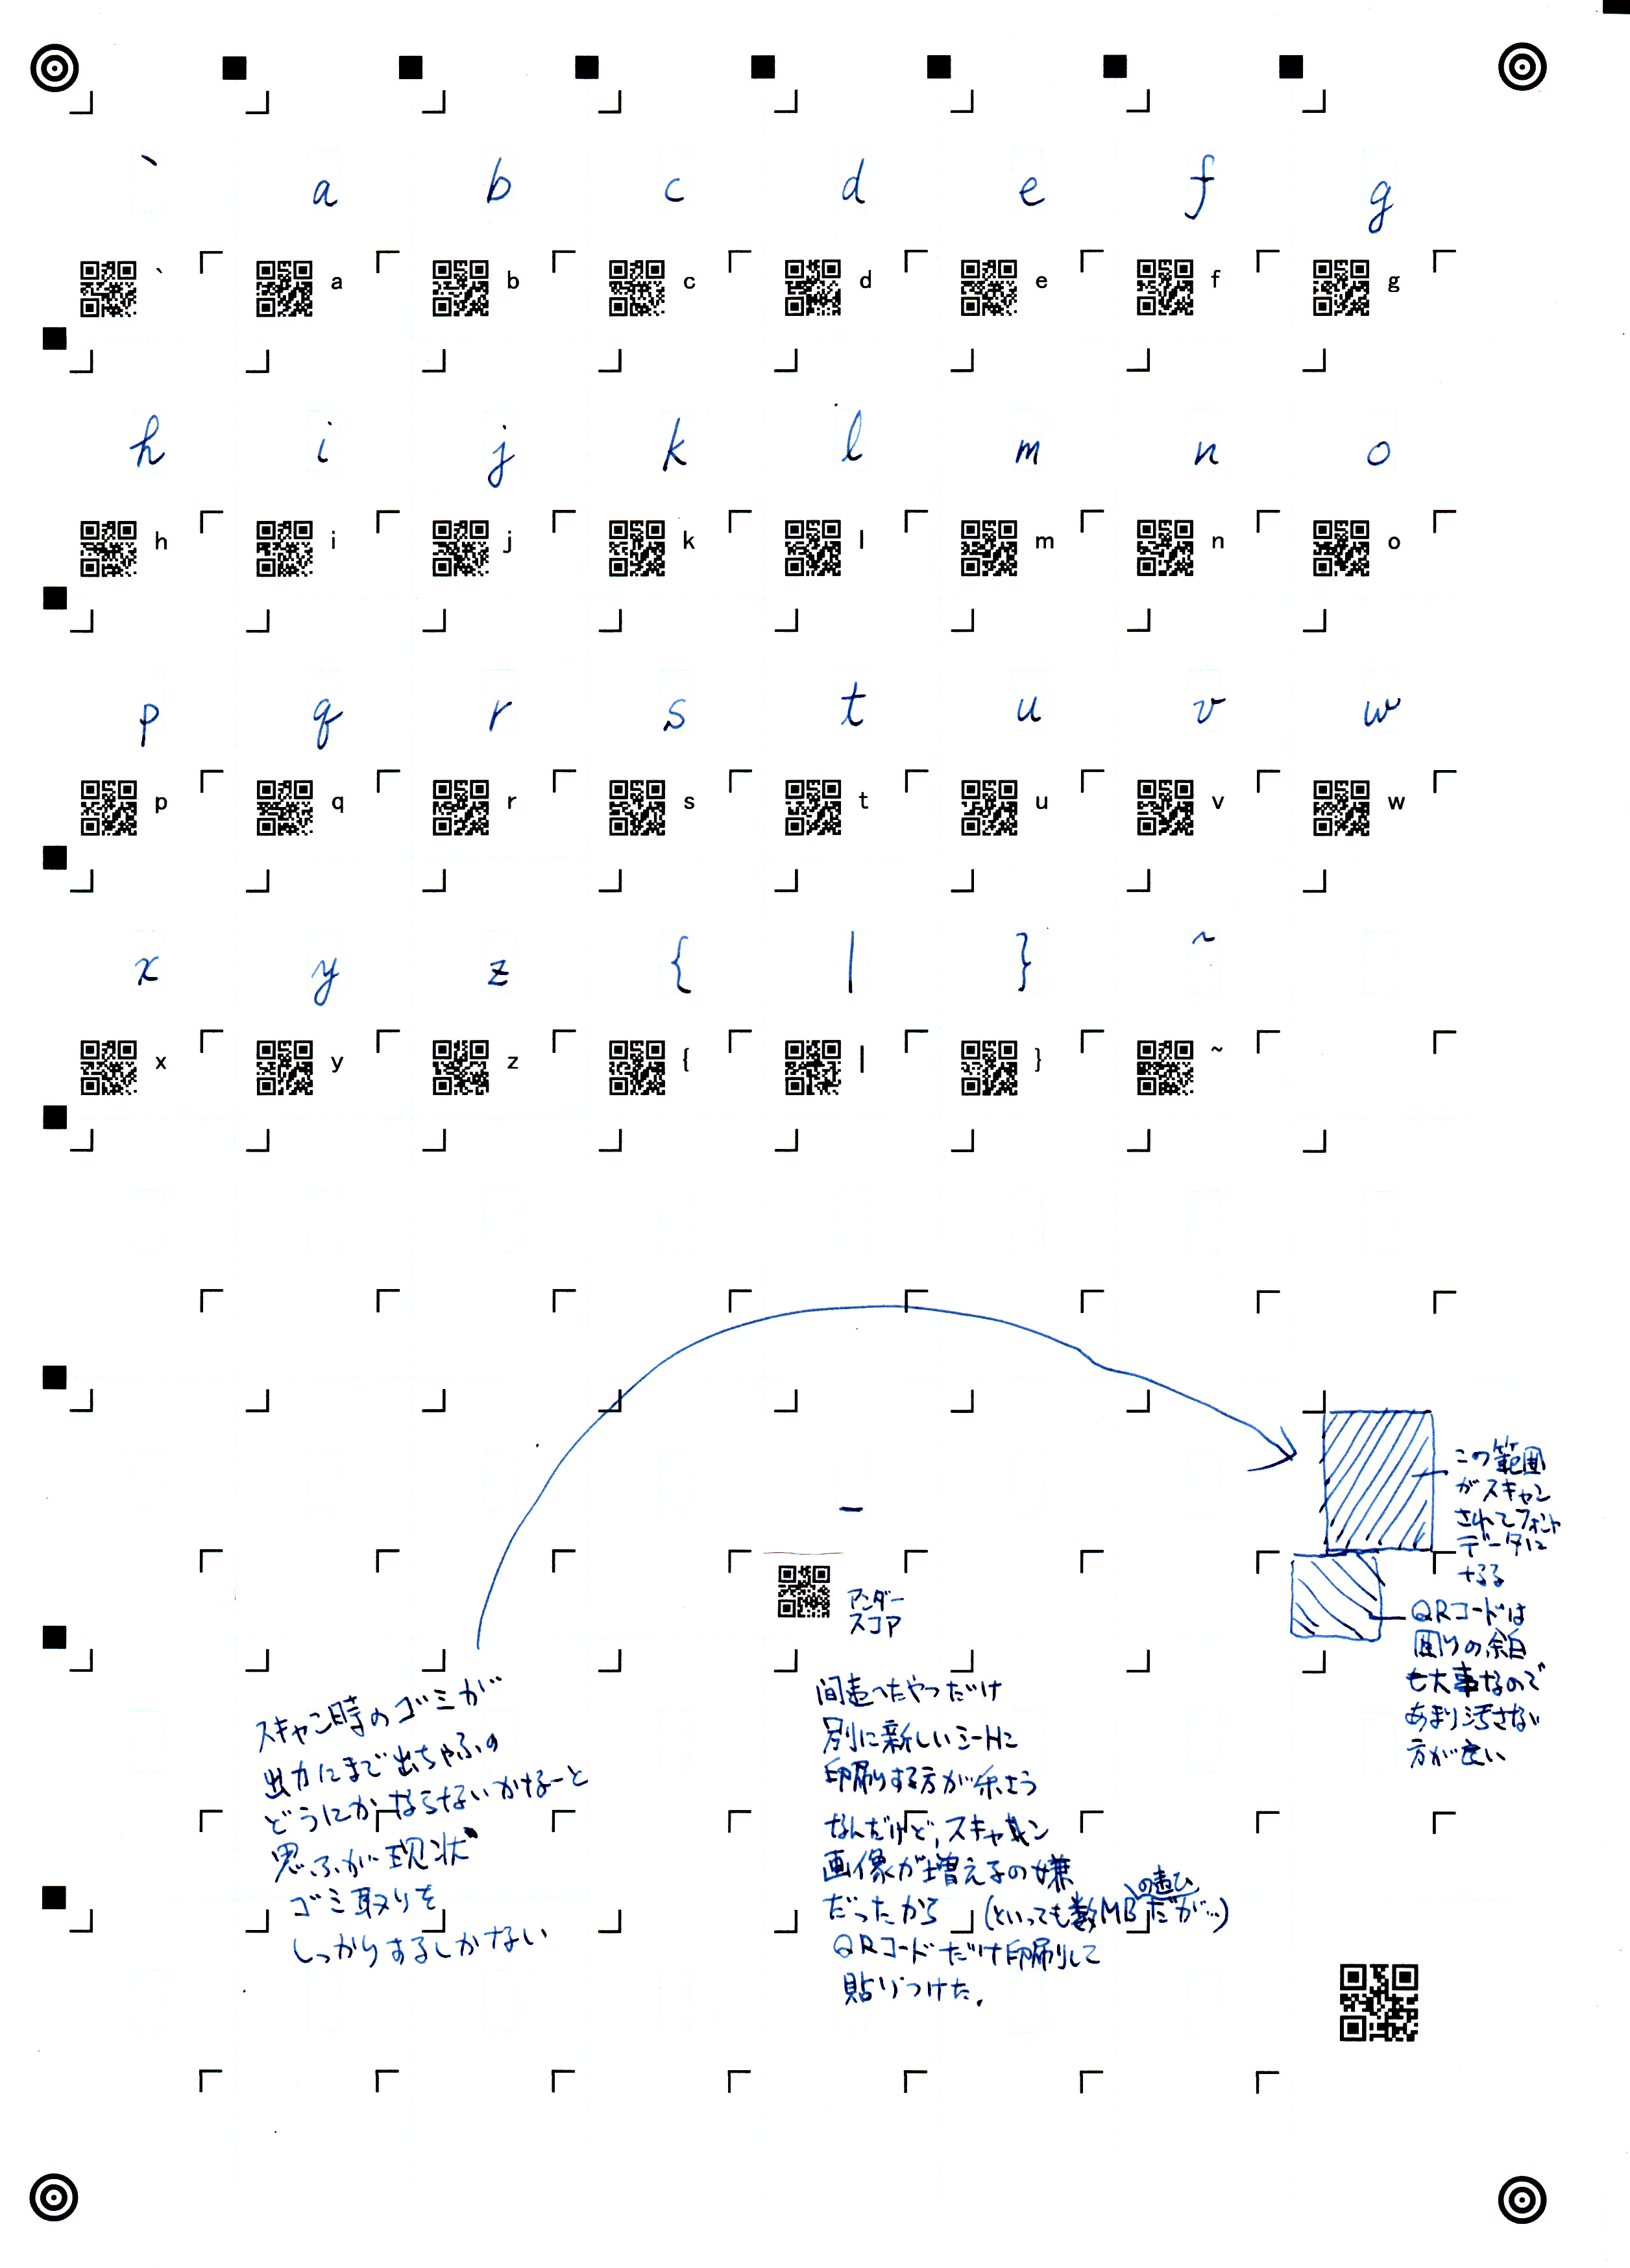 ` a b c d e f g
` a b c d e f g
h i j k l m n o
h i j k l m n o
p q r s t u v w
p q r s t u v w
x y z { | } ~
x y z { | } ~
_
アンダー
スコア
この範囲
がスキャン
されてフォント
データに
なるる
QRコードは
囲りの余白
も大事なので
あまり汚さない
方が良い
スキャン時のゴミが
出力にまで出ちゃふの
どうにかならないかなーと
思ふが現状
ゴミ取りを
しっかりするしかない
間違へたやつだけ
別に新しいシートに
印刷する方が
なんだけど,スキャン
画像が増えるの嫌
だったから (といっても数MBの違ひだが…)
QRコードだけ印刷して
貼りつけた.